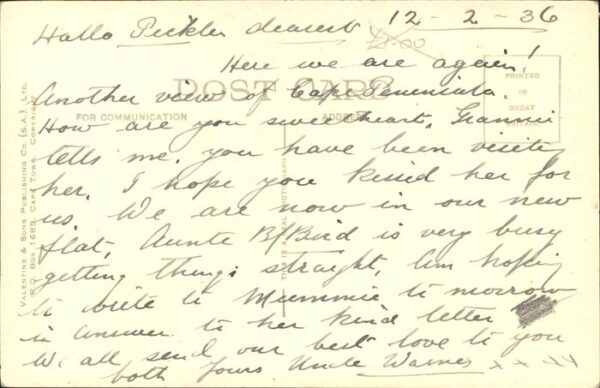 Hallo Pickles dearest 12 - 2 - 36
Here we are again!
POST CARD
Another view of Cape Peninsula.
FOR COMMUNICATION
ADDRESS
PRINTED
IN
GREAT
BRITAIN
How are you sweetheart, Grannie
tells me, you have been visiting
her. I hope you kissed her for
us. We are now in our new
flat, Auntie B/Bird is very busy
getting things straight, am hoping
to write to Mummie to morrow
in answer to her kind letter
We all send our best love to you
both Yours Uncle
VALENTINE & SONS PUBLISHING CO. (S.A.), LTD.
P.O. BOX 1685, CAPE TOWN. COPYRIGHT